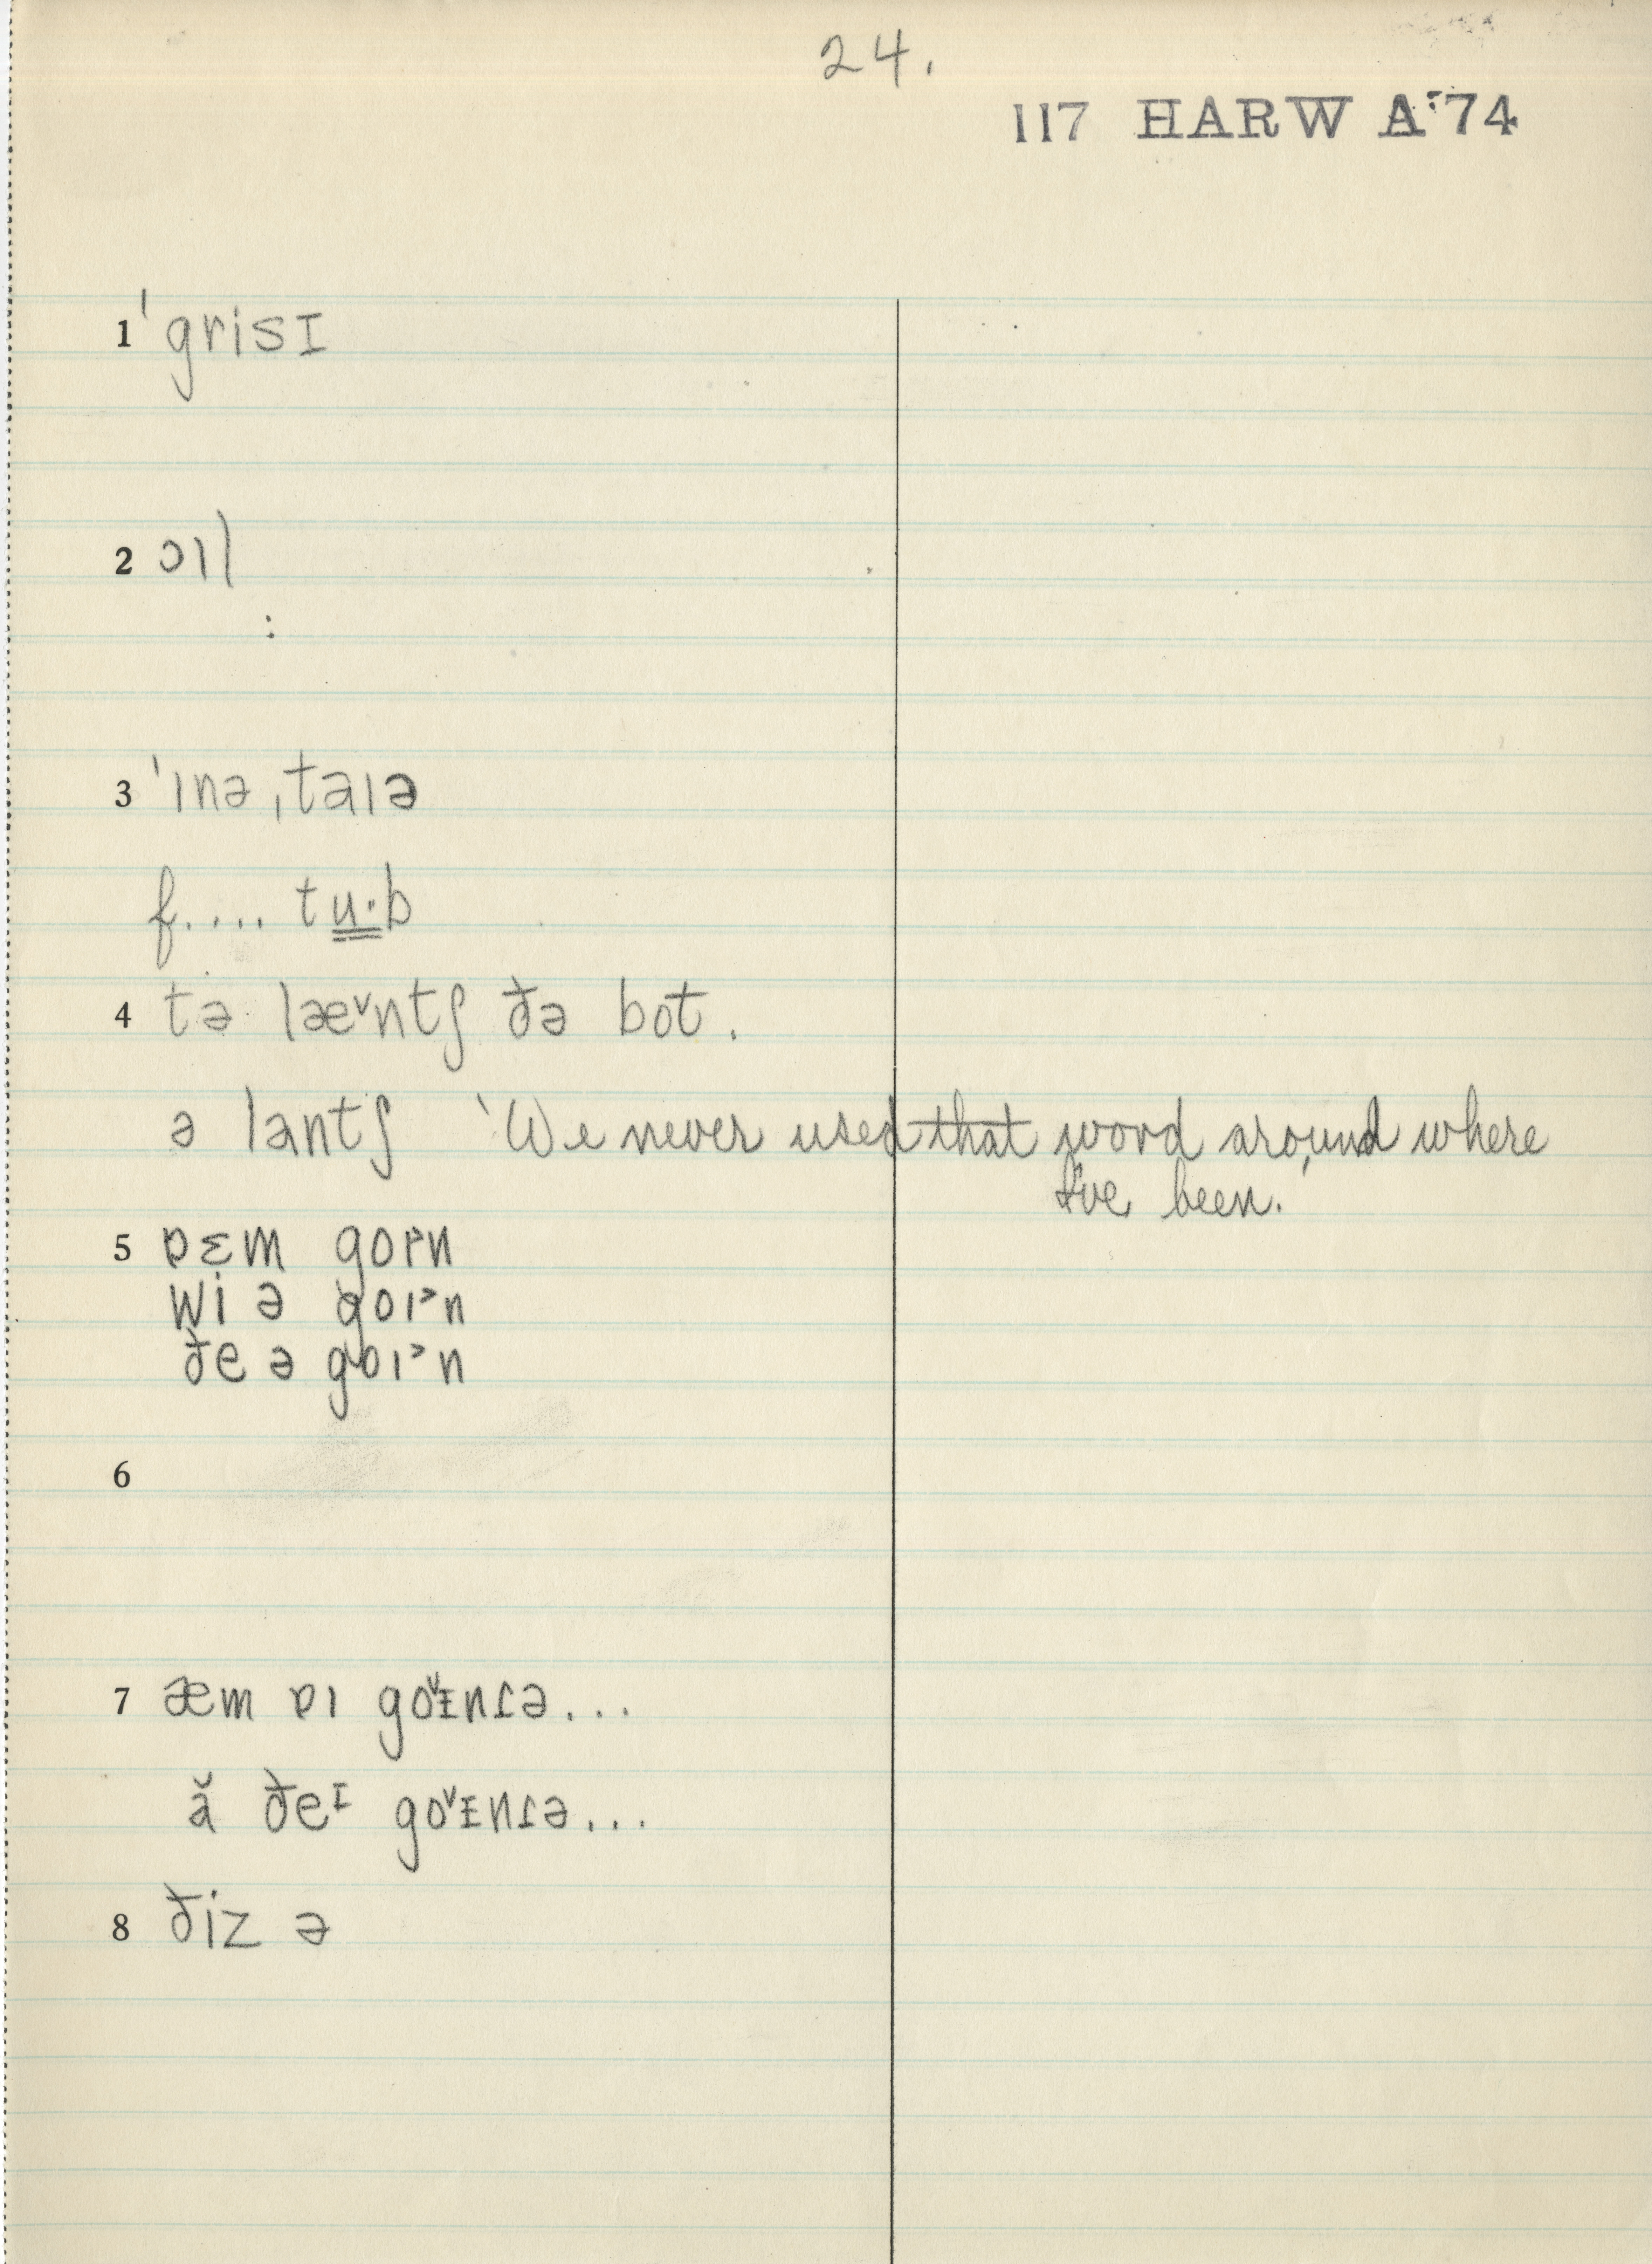 24.
117 HARW A:74
1 ˈgrisɪ
2 ɔıl
:
3 ˈınə ˌtaıə
f.... tu·b
4 tə læ˅ntʃ ðə bot.
ə lantʃ 'We never used that word around where
I've been.'
5 ɒɛm goɪn
wi ə goıᵊn
ðe ə goıᵊn
6
7 æm ɒı go˅ɪnɾə...
ă ðeᶦ go˅ɪnɾə...
8 ðiz ə